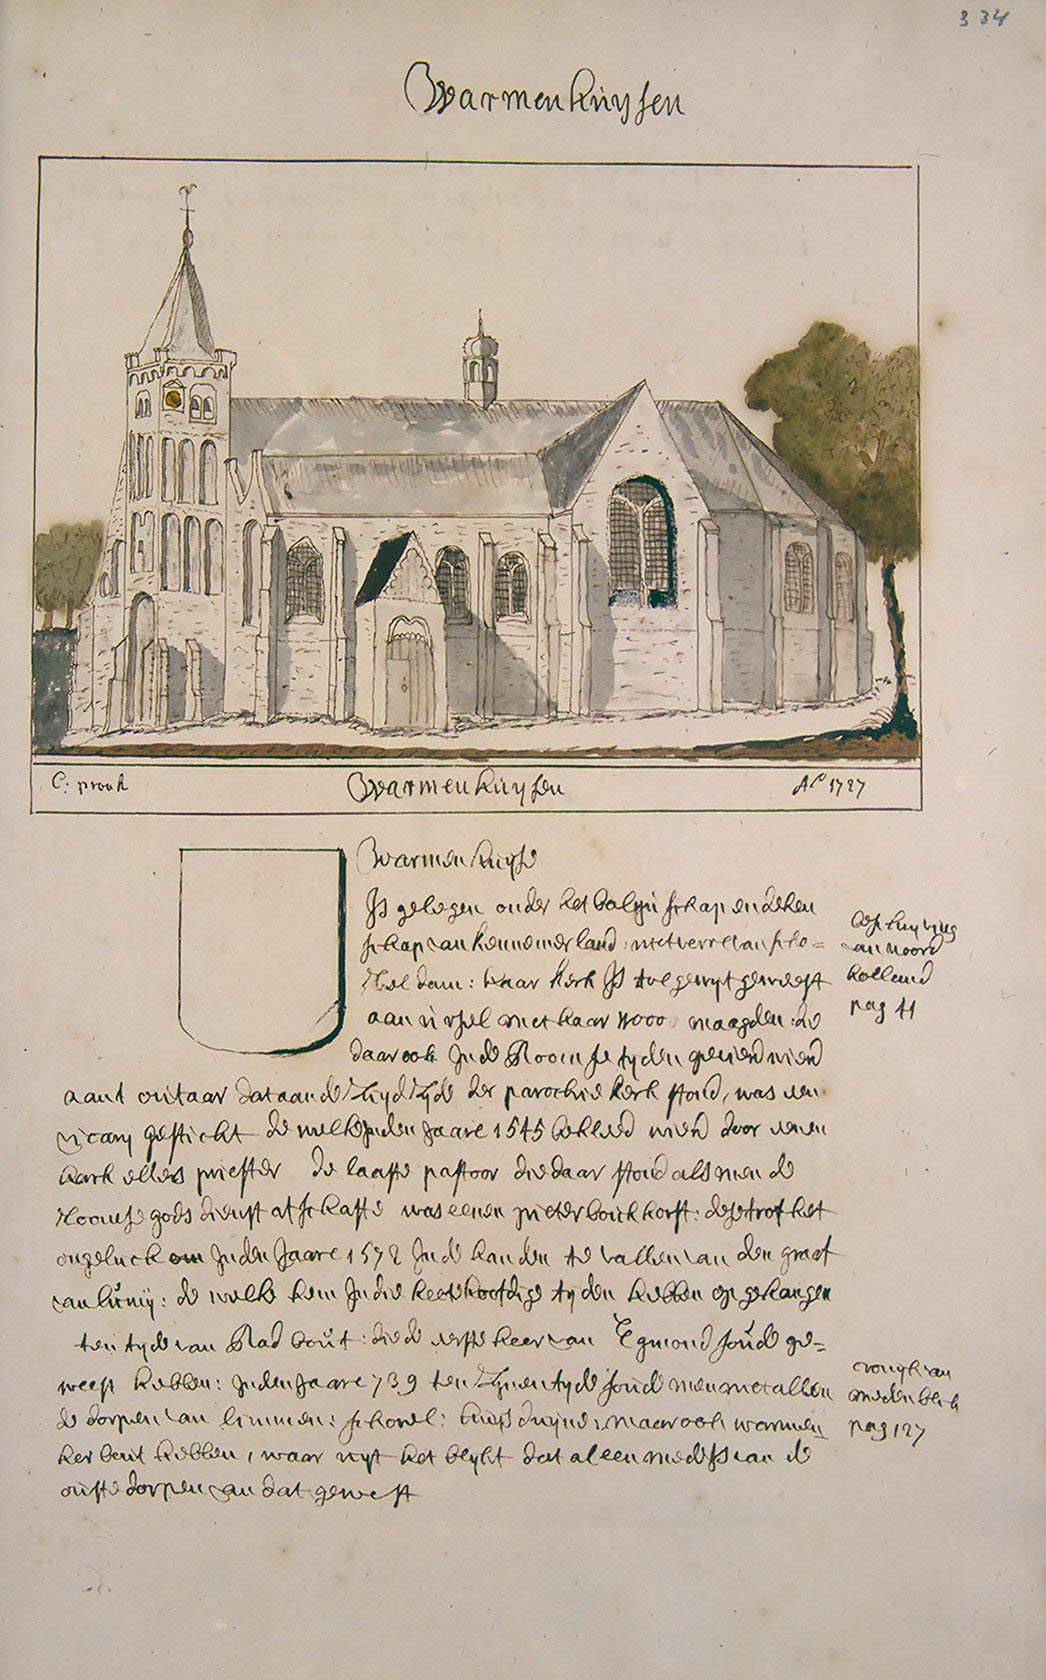 334
Warmenhuysen
C: pronk
Warmenhuysen
Ao 1727
Warmenhuyse
Js gelegen onder het balyuschap en deken
schap van kennemerland: niet verre van scho=
rel dam: haar kerk Js toe gewyt geweest
aan ursel met haar 11000 maagden: die
daar ook Jn de Roomse tyden geviert wierd
aant outaar dat aan de Zuyd Zyde der parochie kerk stond, was een
vicary gesticht de welke jnden Jaare 1545 bekleed wierd door eenen
priester de laaste pastoor die daar stond als men de
roomse gods dienst afschafte was eenen pieter boickhorst: dese trof het
ongeluck om Jnden Jaare 1572 Jn de handen te vallen van den graaf
van lumij: de welke hem Jn die heethoofdige tyden hebben op gehangen
ten tyde van Radbout: die de eerste heer van Egmond soude ge=
weest hebben: Jnden Jaare 739 ten Zynen tyde soude men met alleen
de dorpen van limmen: schorel: huysduyne: maar ook warmen
hebben, waar uyt het blykt dat al een mede Js van de
ouste dorpen van dat gewest
beschryving
van noord
holland
pag 41
cronyk van
medenblik
pag 127